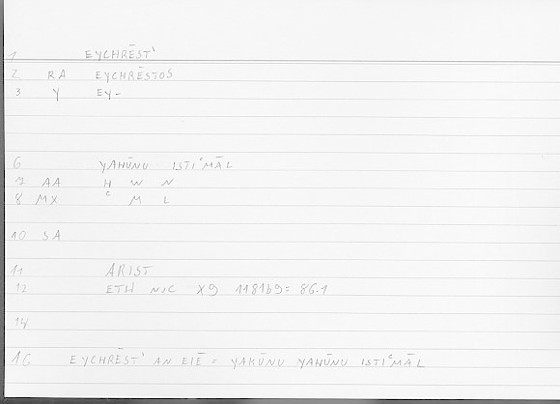 1 EYCHRĒST'
2 RA EYCHRĒSTOS
3 Y EY-
6 YAHŪNU ISTIʿMĀL
7 AA H W N
8 MX ʿ M L
10 SA
11 ARIST
12 ETH NIC X9 1181b9= 86.1
14
16 EYCHRĒST' AN EIĒ = YAKŪNU YAHŪNU ISTIʿMĀL